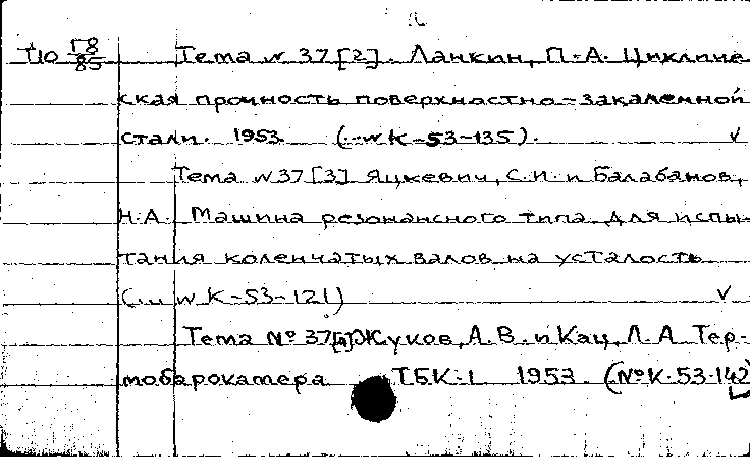 Т10 Г8/85 Тема № 37 [2]. Ланкин, П.А. Цикличе
ская прочность поверхностно-закаленной
стали. 1953 (... № К-53-135). √
Тема № 37 [3] Яцкевич, С.И. и Балабанов,
Н.А. Машина резонансного типа для испы-
тания коленчатых валов на усталость
(... № К-53-121) √
Тема № 37[4] Жуков, А.В. и Кац, Л.А. Тер-
мобарокамера ТБК-1 1953. (№К-53-142)